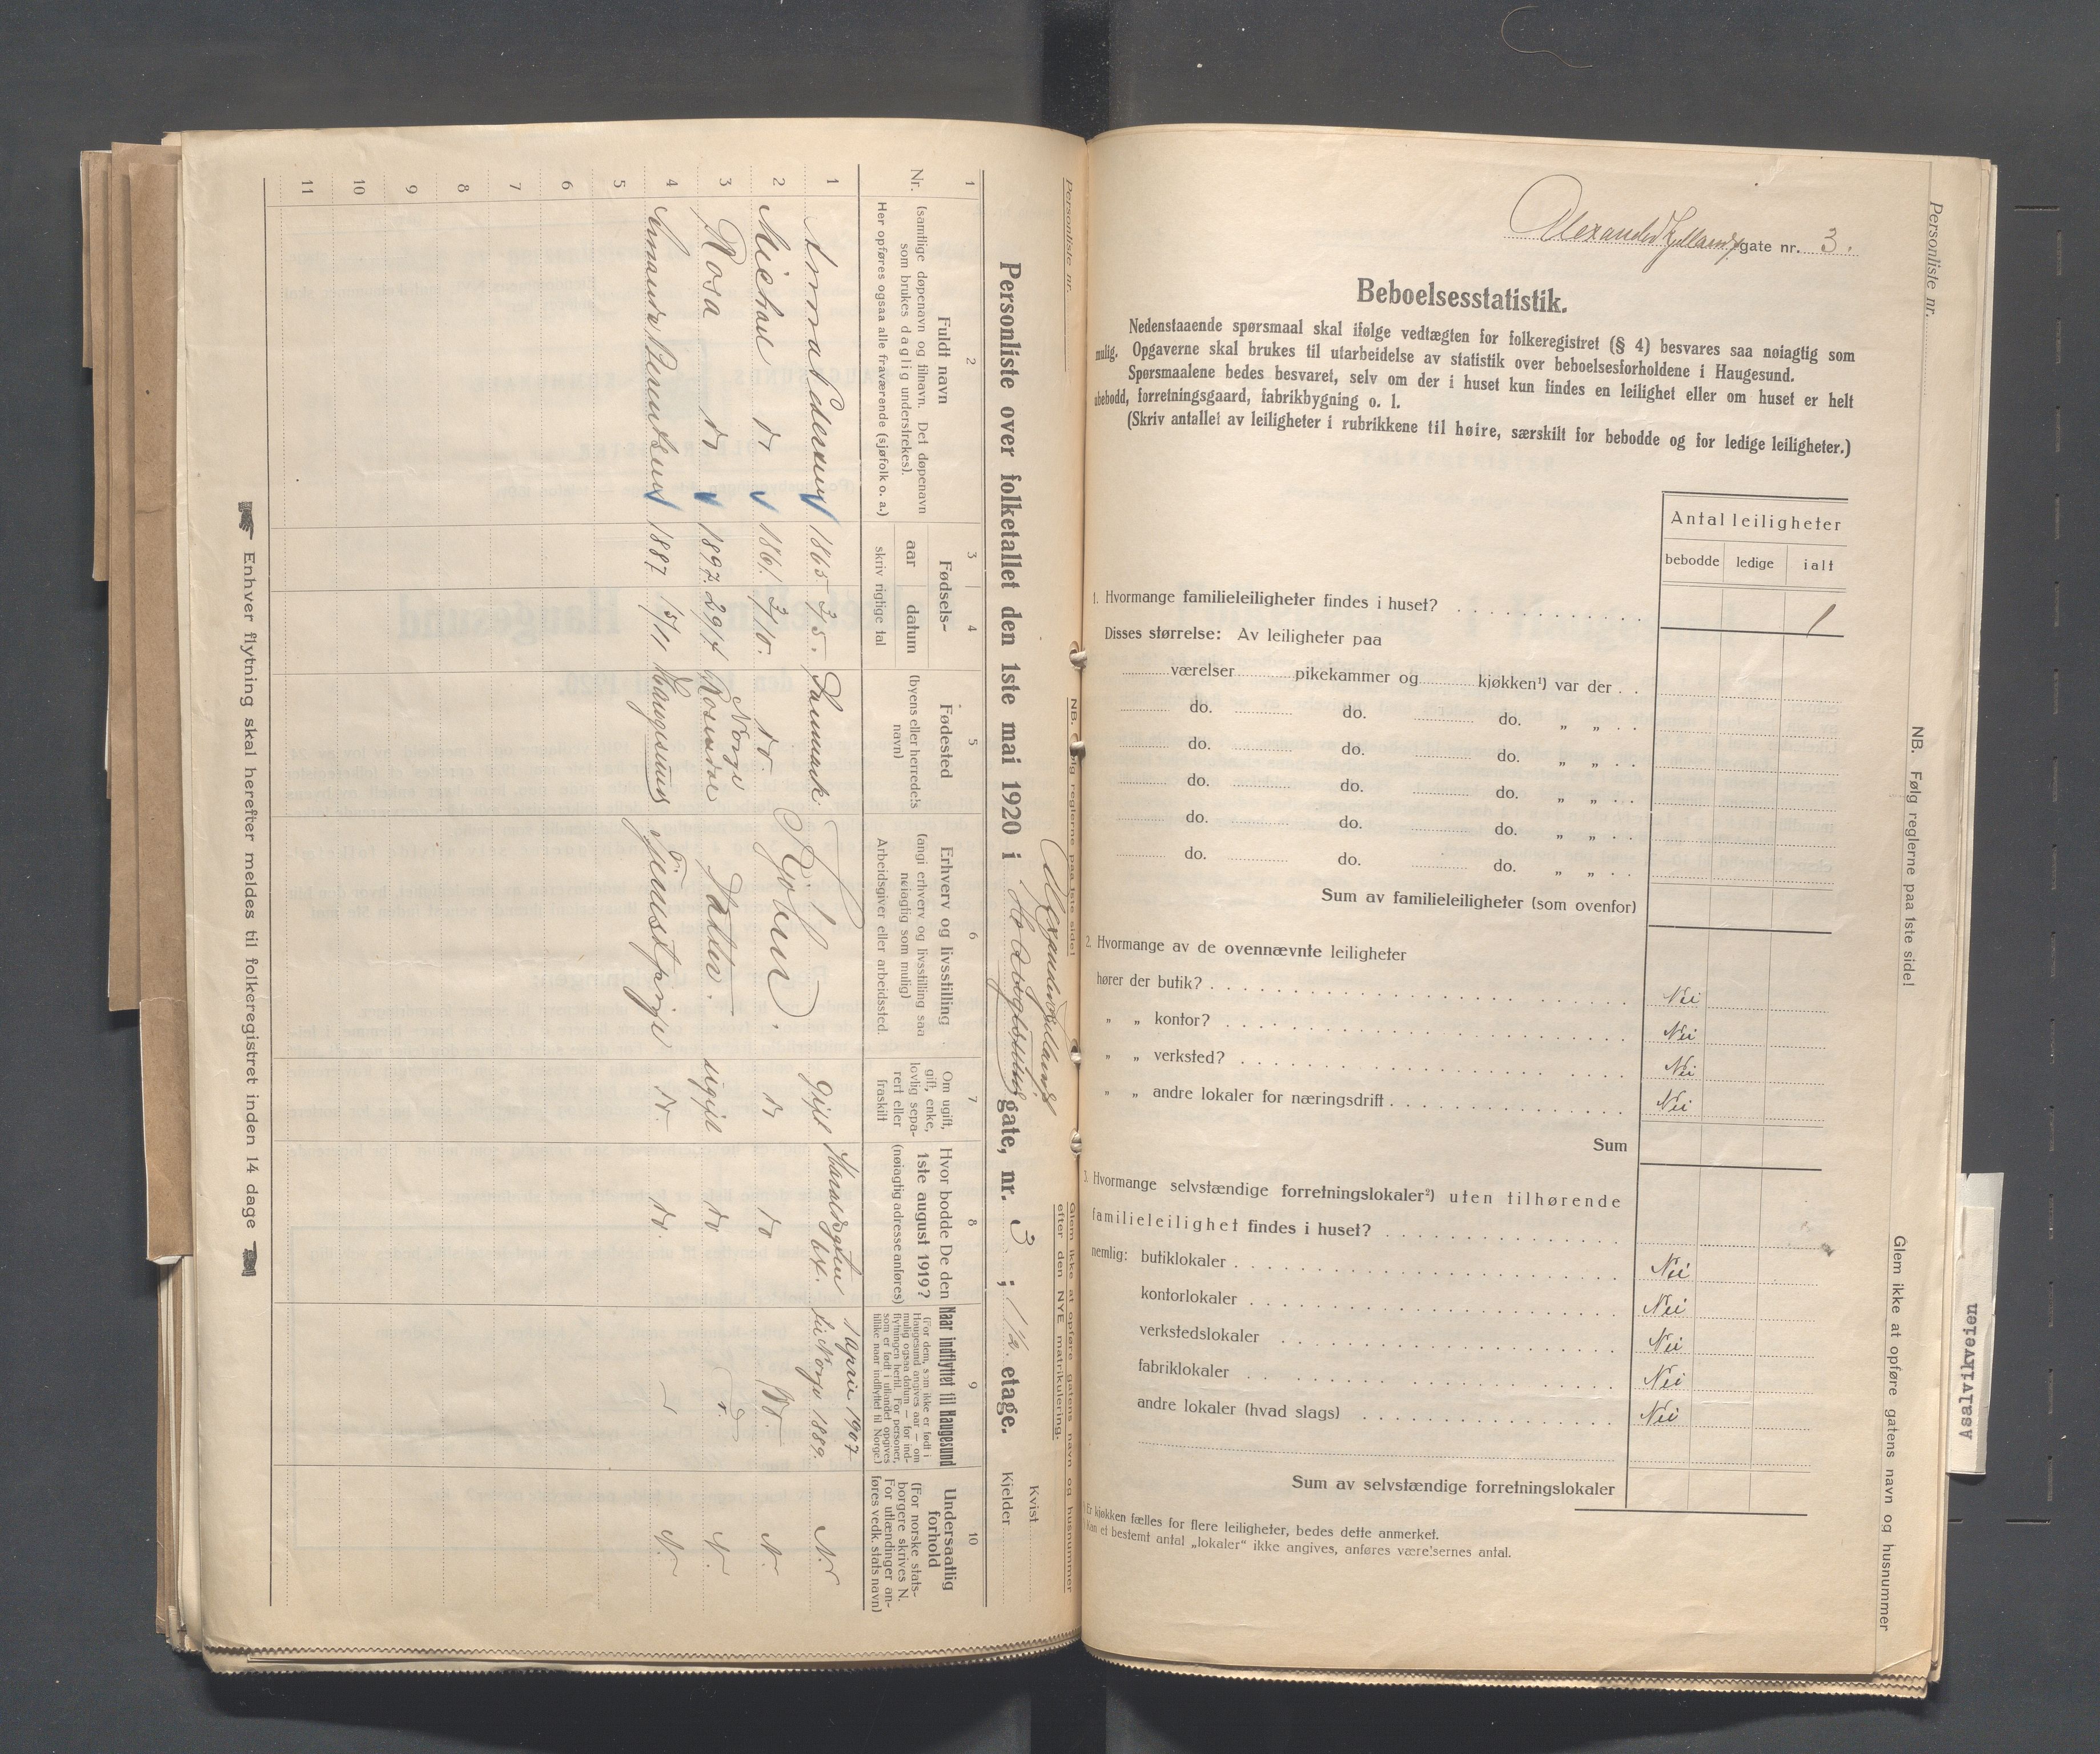 Personliste nr.
NB. Følg reglerne paa 1ste side!
Glem ikke at opføre gatens navn og husnummer
efter den NYE matrikulering.
Personliste over folketallet den 1ste mai 1920 i gate, nr. 3 ; 1ste etage.
Kvist
Kjelder
1 2 3 4 5 6 7 8 9 10
Nr.
Fuldt navn
(samtlige døpenavn og tilnavn. Det døpenavn
som brukes daglig understrekes).
Her opføres ogsaa alle fraværende (sjøfolk o. a.)
Fødsels-
aar datum
skriv rigtige tal
Fødested
(byens eller herredets
navn)
Erhverv og livsstilling
(angi erhverv og livsstilling saa
nøiagtig som mulig)
Arbeidsgiver eller arbeidssted.
Om ugift,
gift, enke,
lovlig sepa-
rert eller
fraskilt
Hvor bodde De den
1ste august 1919?
(nøiagtig adresse anføres)
Naar indflyttet til Haugesund
(For dem, som ikke er født i
Haugesund angives aar — om
mulig ogsaa datum — for ind-
flytningen hertil. For personer,
som er født i utlandet opgives
tillike naar indflyttet til Norge.)
Undersaatlig
forhold
(For norske stats-
borgere skrives N.
For utlændinger an-
føres vedk. stats navn)
1 Anna Pedersen 1865 3/5. Danmark Gift Haraldsgaten 1 April 1907 til Norge 1889. N.
2 Michael do 1861. 3/10. do. do do N.
3 Rosa do 1897. 29/7 Rosendal Norge Datter. ugift do N.
4 Amanda Berentsen 1887 15/11 Haugesund Tjenestepige do. do. N.
5
6
7
8
9
10
11
Enhver flytning skal herefter meldes til folkeregistret inden 14 dage
Personliste nr.
NB. Følg reglerne paa 1ste side!
Glem ikke at opføre gatens navn og husnummer
Alexander Kjellands gate nr. 3.
Beboelsesstatistik.
Nedenstaaende spørsmaal skal ifølge vedtægten for folkeregistret (§ 4) besvares saa nøiagtig som
mulig. Opgaverne skal brukes til utarbeidelse av statistik over beboelsesforholdene i Haugesund.
Spørsmaalene bedes besvaret, selv om der i huset kun findes en leilighet eller om huset er helt
ubebodd, forretningsgaard, fabrikbygning o. l.
(Skriv antallet av leiligheter i rubrikkene til høire, særskilt for bebodde og for ledige leiligheter.)
Antal leiligheter
bebodde ledige ialt
1. Hvormange familieleiligheter findes i huset? 1
Disses størrelse: Av leiligheter paa
værelser pikekammer og kjøkken¹) var der
do. do. do. „ „
do. do. do. „ „
do. do. do. „ „
do. do. do. „ „
do. do. do. „ „
Sum av familieleiligheter (som ovenfor)
2. Hvormange av de ovennævnte leiligheter
hører der butik? Nei
„ „ kontor? Nei
„ „ verksted? Nei
„ „ andre lokaler for næringsdrift Nei
Sum
3. Hvormange selvstændige forretningslokaler²) uten tilhørende
familieleilighet findes i huset?
nemlig: butiklokaler Nei
kontorlokaler Nei
verkstedslokaler Nei
fabriklokaler Nei
andre lokaler (hvad slags) Nei
Sum av selvstændige forretningslokaler
Er kjøkken fælles for flere leiligheter, bedes dette anmerket.
Kan et bestemt antal „lokaler" ikke angives, anføres værelsernes antal.
Assalvikveien